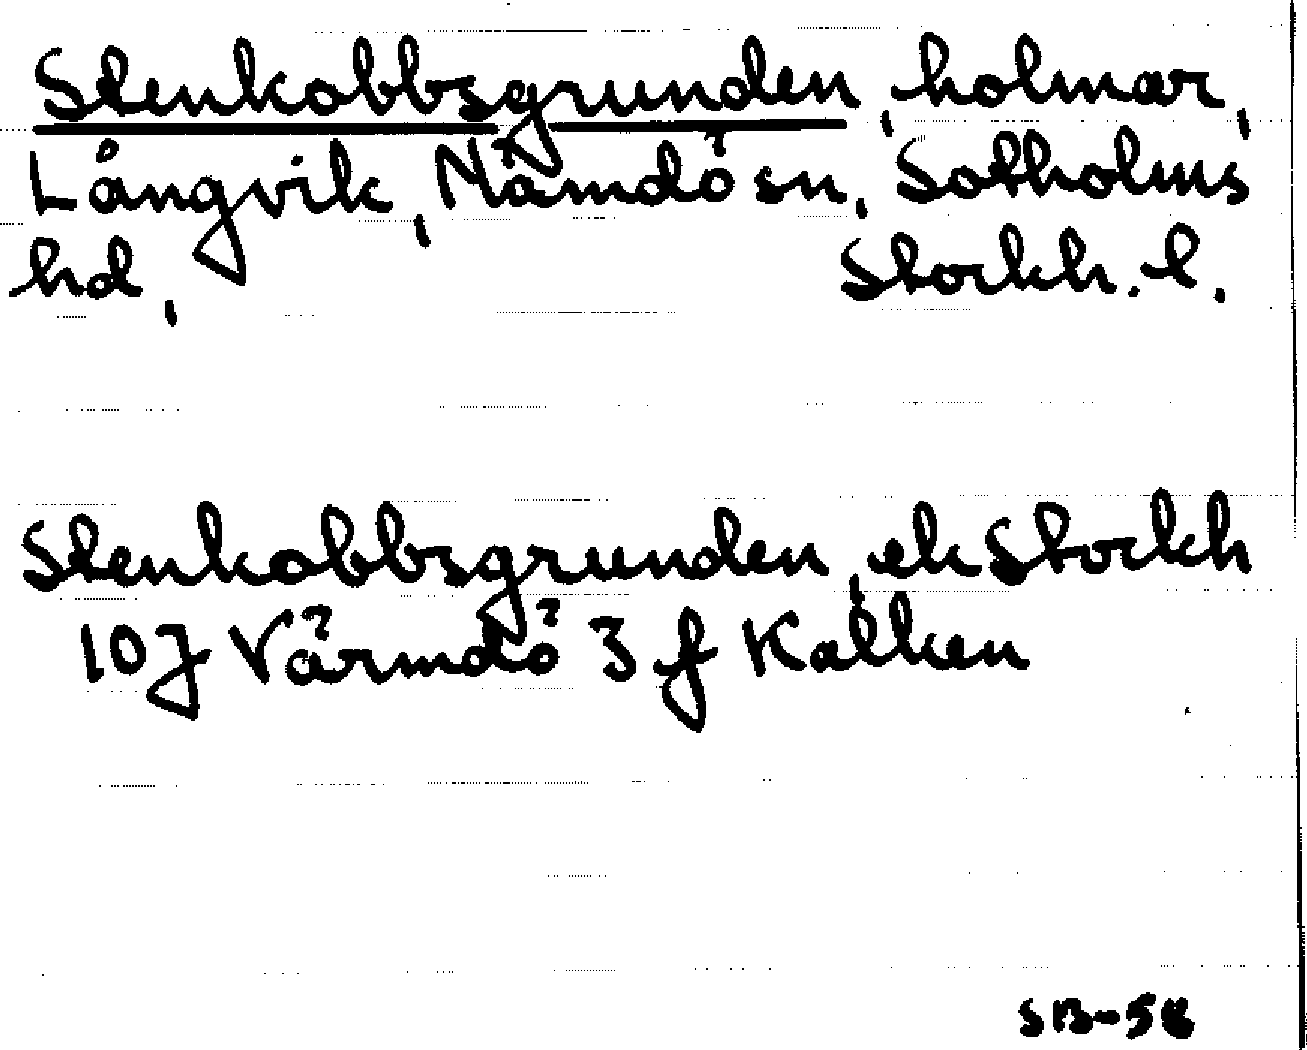 Stenkobbsgrunden, holmar,
Långvik, Nämdö sn, Sotholms
hd, Stockh. l.
Stenkobbsgrunden, ek Stockh
10J Värmdö 3 f Kalken
SB-58